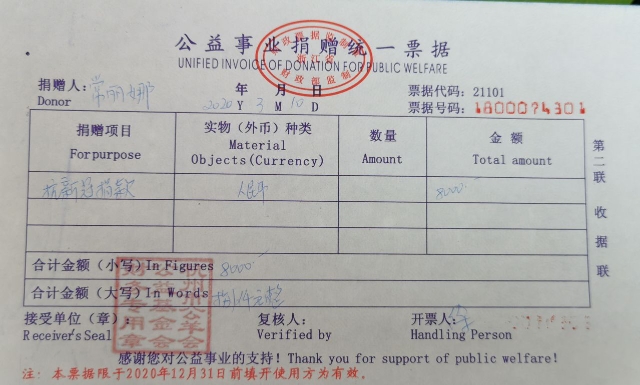 公益事业捐赠统一票据
UNIFIED INVOICE OF DONATION FOR PUBLIC WELFARE
捐赠人: 常丽娜 年 月 日 票据代码: 21101
Donor 2020 Y 3 M 10 D 票据号码: 1800074301
捐赠项目 实物（外币）种类 数量 金 额
For purpose Material Objects (Currency) Amount Total amount
抗新冠捐款 人民币 8000
合计金额（小写）In Figures 8000
合计金额（大写）In Words 捌仟元整
接受单位（章） 复核人: 开票人:
Receiver's Seal Verified by Handling Person
感谢您对公益事业的支持! Thank you for support of public welfare!
注: 本票据限于2020年12月31日前填开使用方为有效。
第二联 收据联